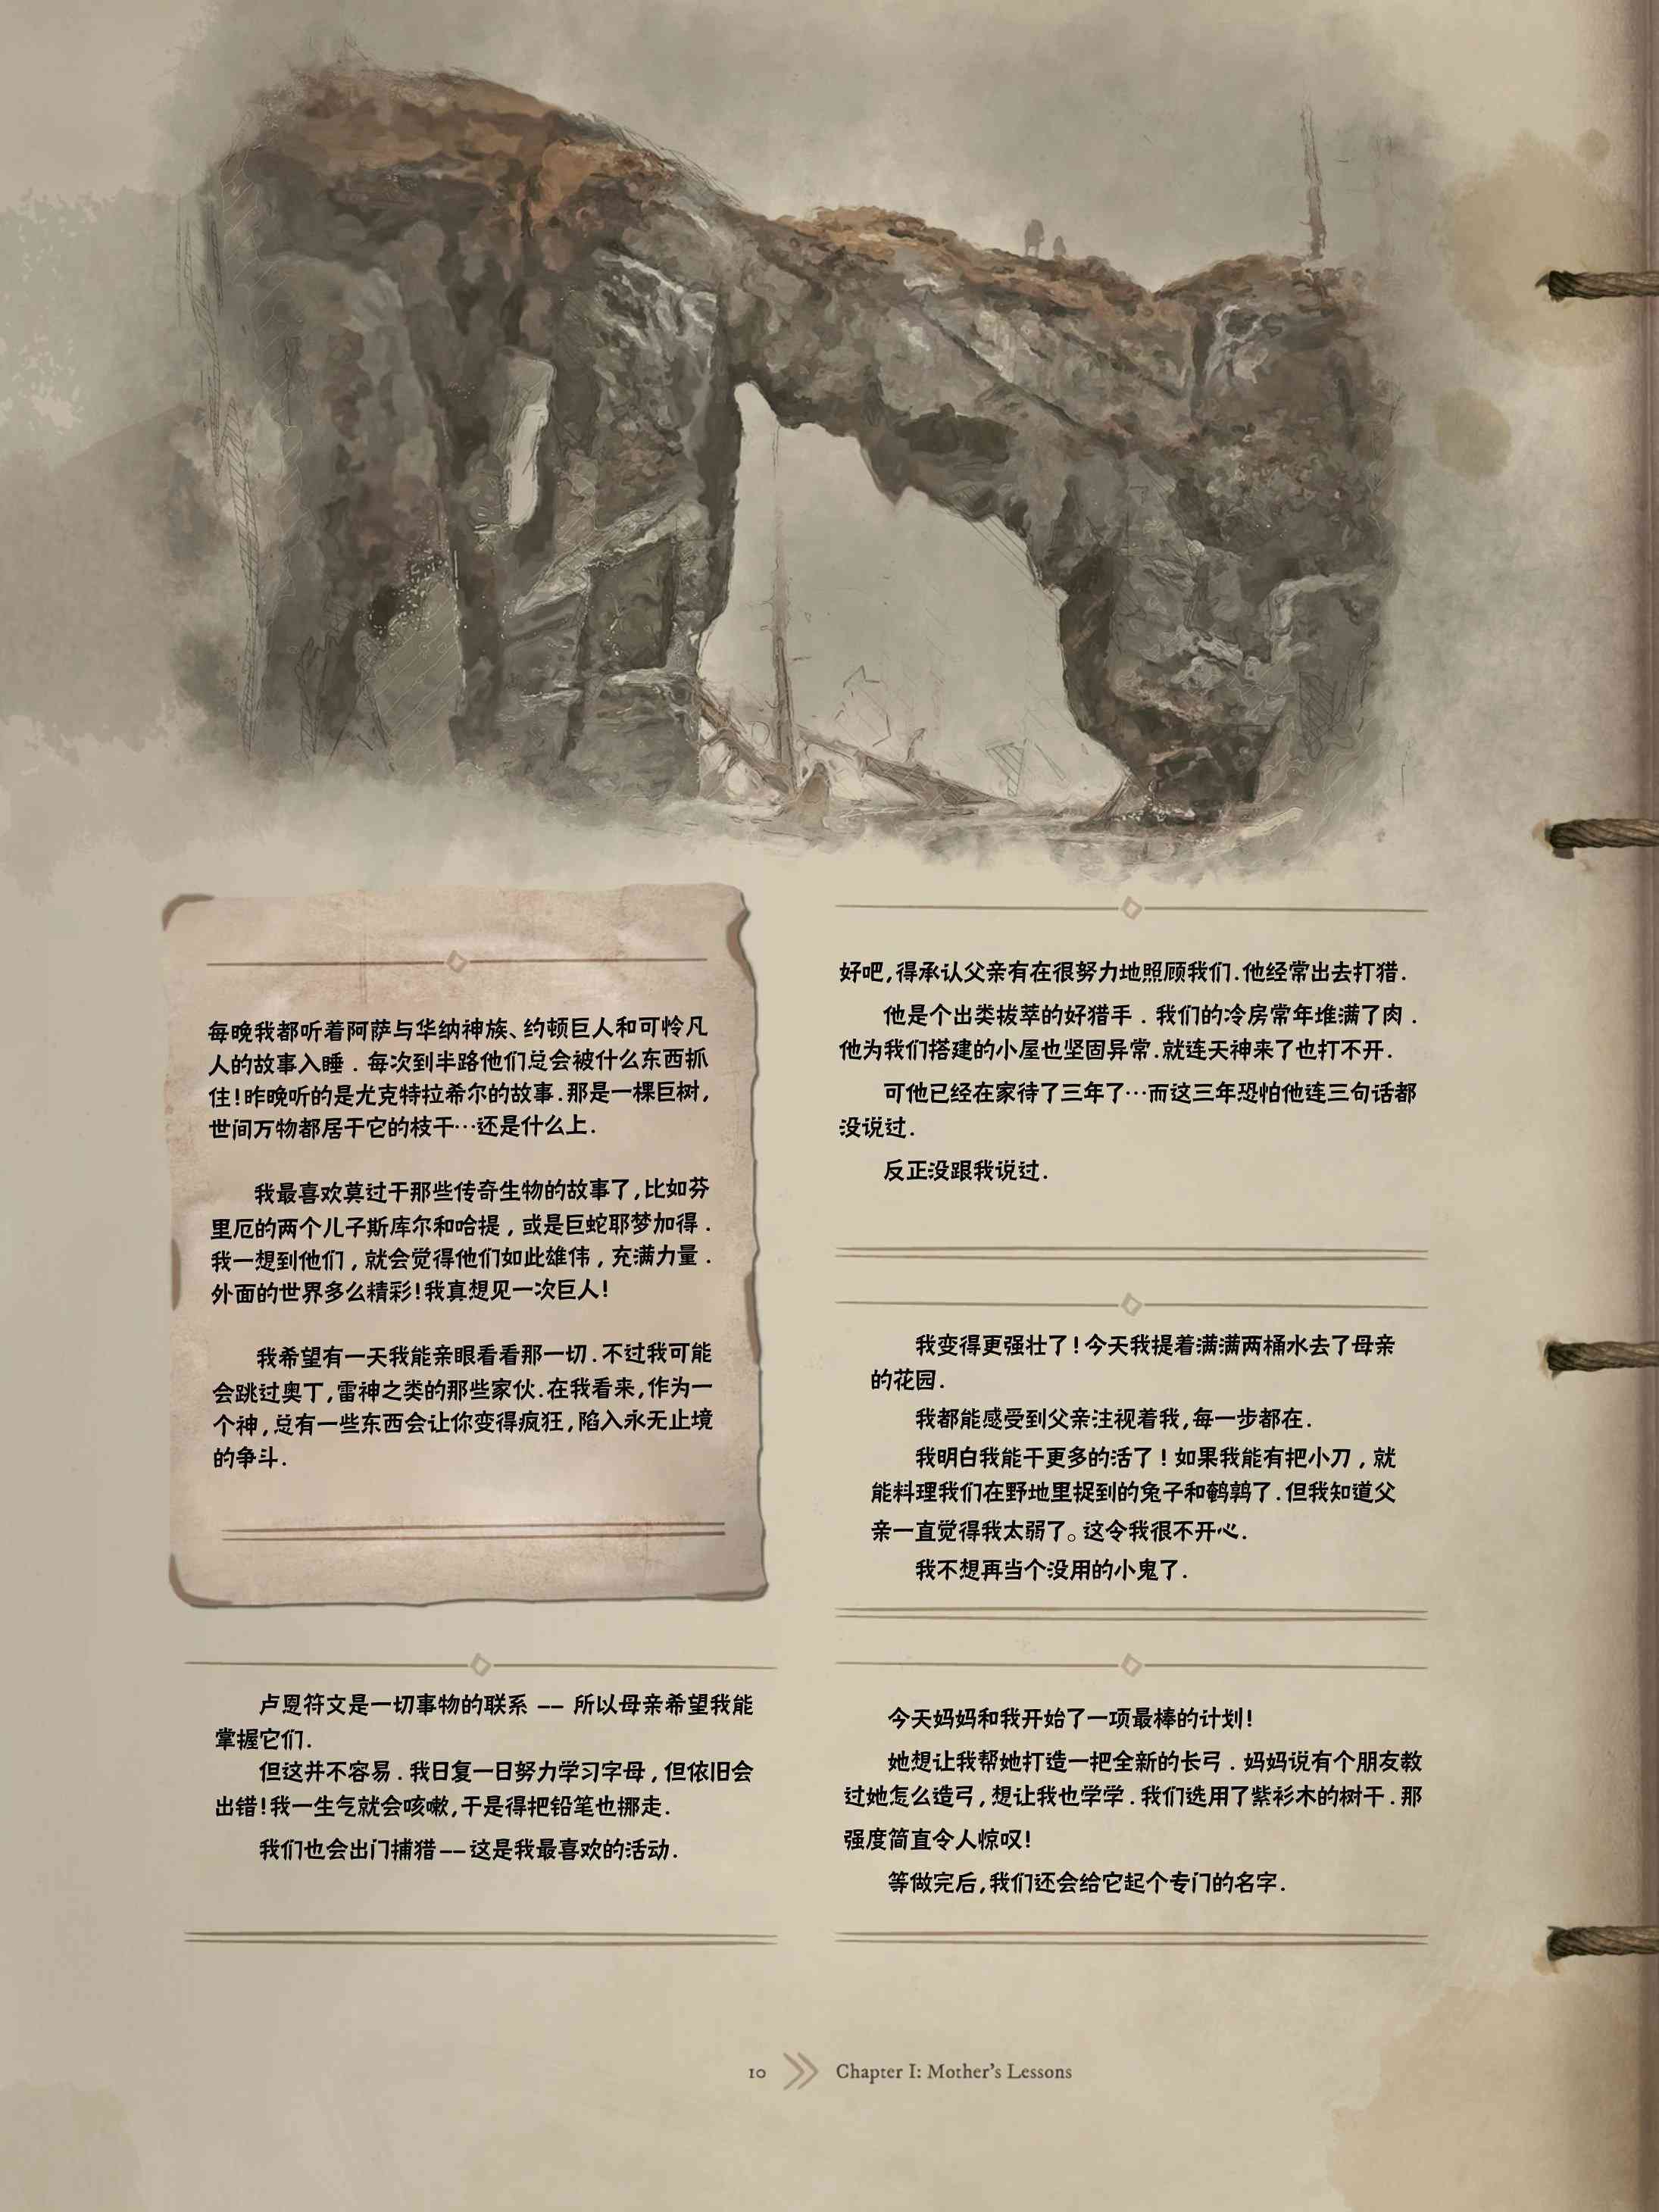 每晚我都听着阿萨与华纳神族、约顿巨人和可怜凡
人的故事入睡．每次到半路他们总会被什么东西抓
住!昨晚听的是尤克特拉希尔的故事.那是一棵巨树,
世间万物都居于它的枝干…还是什么上.
我最喜欢莫过于那些传奇生物的故事了,比如芬
里厄的两个儿子斯库尔和哈提，或是巨蛇耶梦加得．
我一想到他们，就会觉得他们如此雄伟，充满力量．
外面的世界多么精彩!我真想见一次巨人!
我希望有一天我能亲眼看看那一切.不过我可能
会跳过奥丁,雷神之类的那些家伙.在我看来,作为一
个神,总有一些东西会让你变得疯狂,陷入永无止境
的争斗.
卢恩符文是一切事物的联系 —— 所以母亲希望我能
掌握它们.
但这并不容易．我日复一日努力学习字母，但依旧会
出错!我一生气就会咳嗽,于是得把铅笔也挪走.
我们也会出门捕猎——这是我最喜欢的活动.
好吧,得承认父亲有在很努力地照顾我们.他经常出去打猎.
他是个出类拔萃的好猎手．我们的冷房常年堆满了肉．
他为我们搭建的小屋也坚固异常.就连天神来了也打不开.
可他已经在家待了三年了…而这三年恐怕他连三句话都
没说过.
反正没跟我说过.
我变得更强壮了!今天我提着满满两桶水去了母亲
的花园.
我都能感受到父亲注视着我,每一步都在.
我明白我能干更多的活了！如果我能有把小刀，就
能料理我们在野地里捉到的兔子和鹌鹑了.但我知道父
亲一直觉得我太弱了。这令我很不开心.
我不想再当个没用的小鬼了.
今天妈妈和我开始了一项最棒的计划!
她想让我帮她打造一把全新的长弓．妈妈说有个朋友教
过她怎么造弓,想让我也学学.我们选用了紫衫木的树干.那
强度简直令人惊叹!
等做完后,我们还会给它起个专门的名字.
10 Chapter I: Mother's Lessons